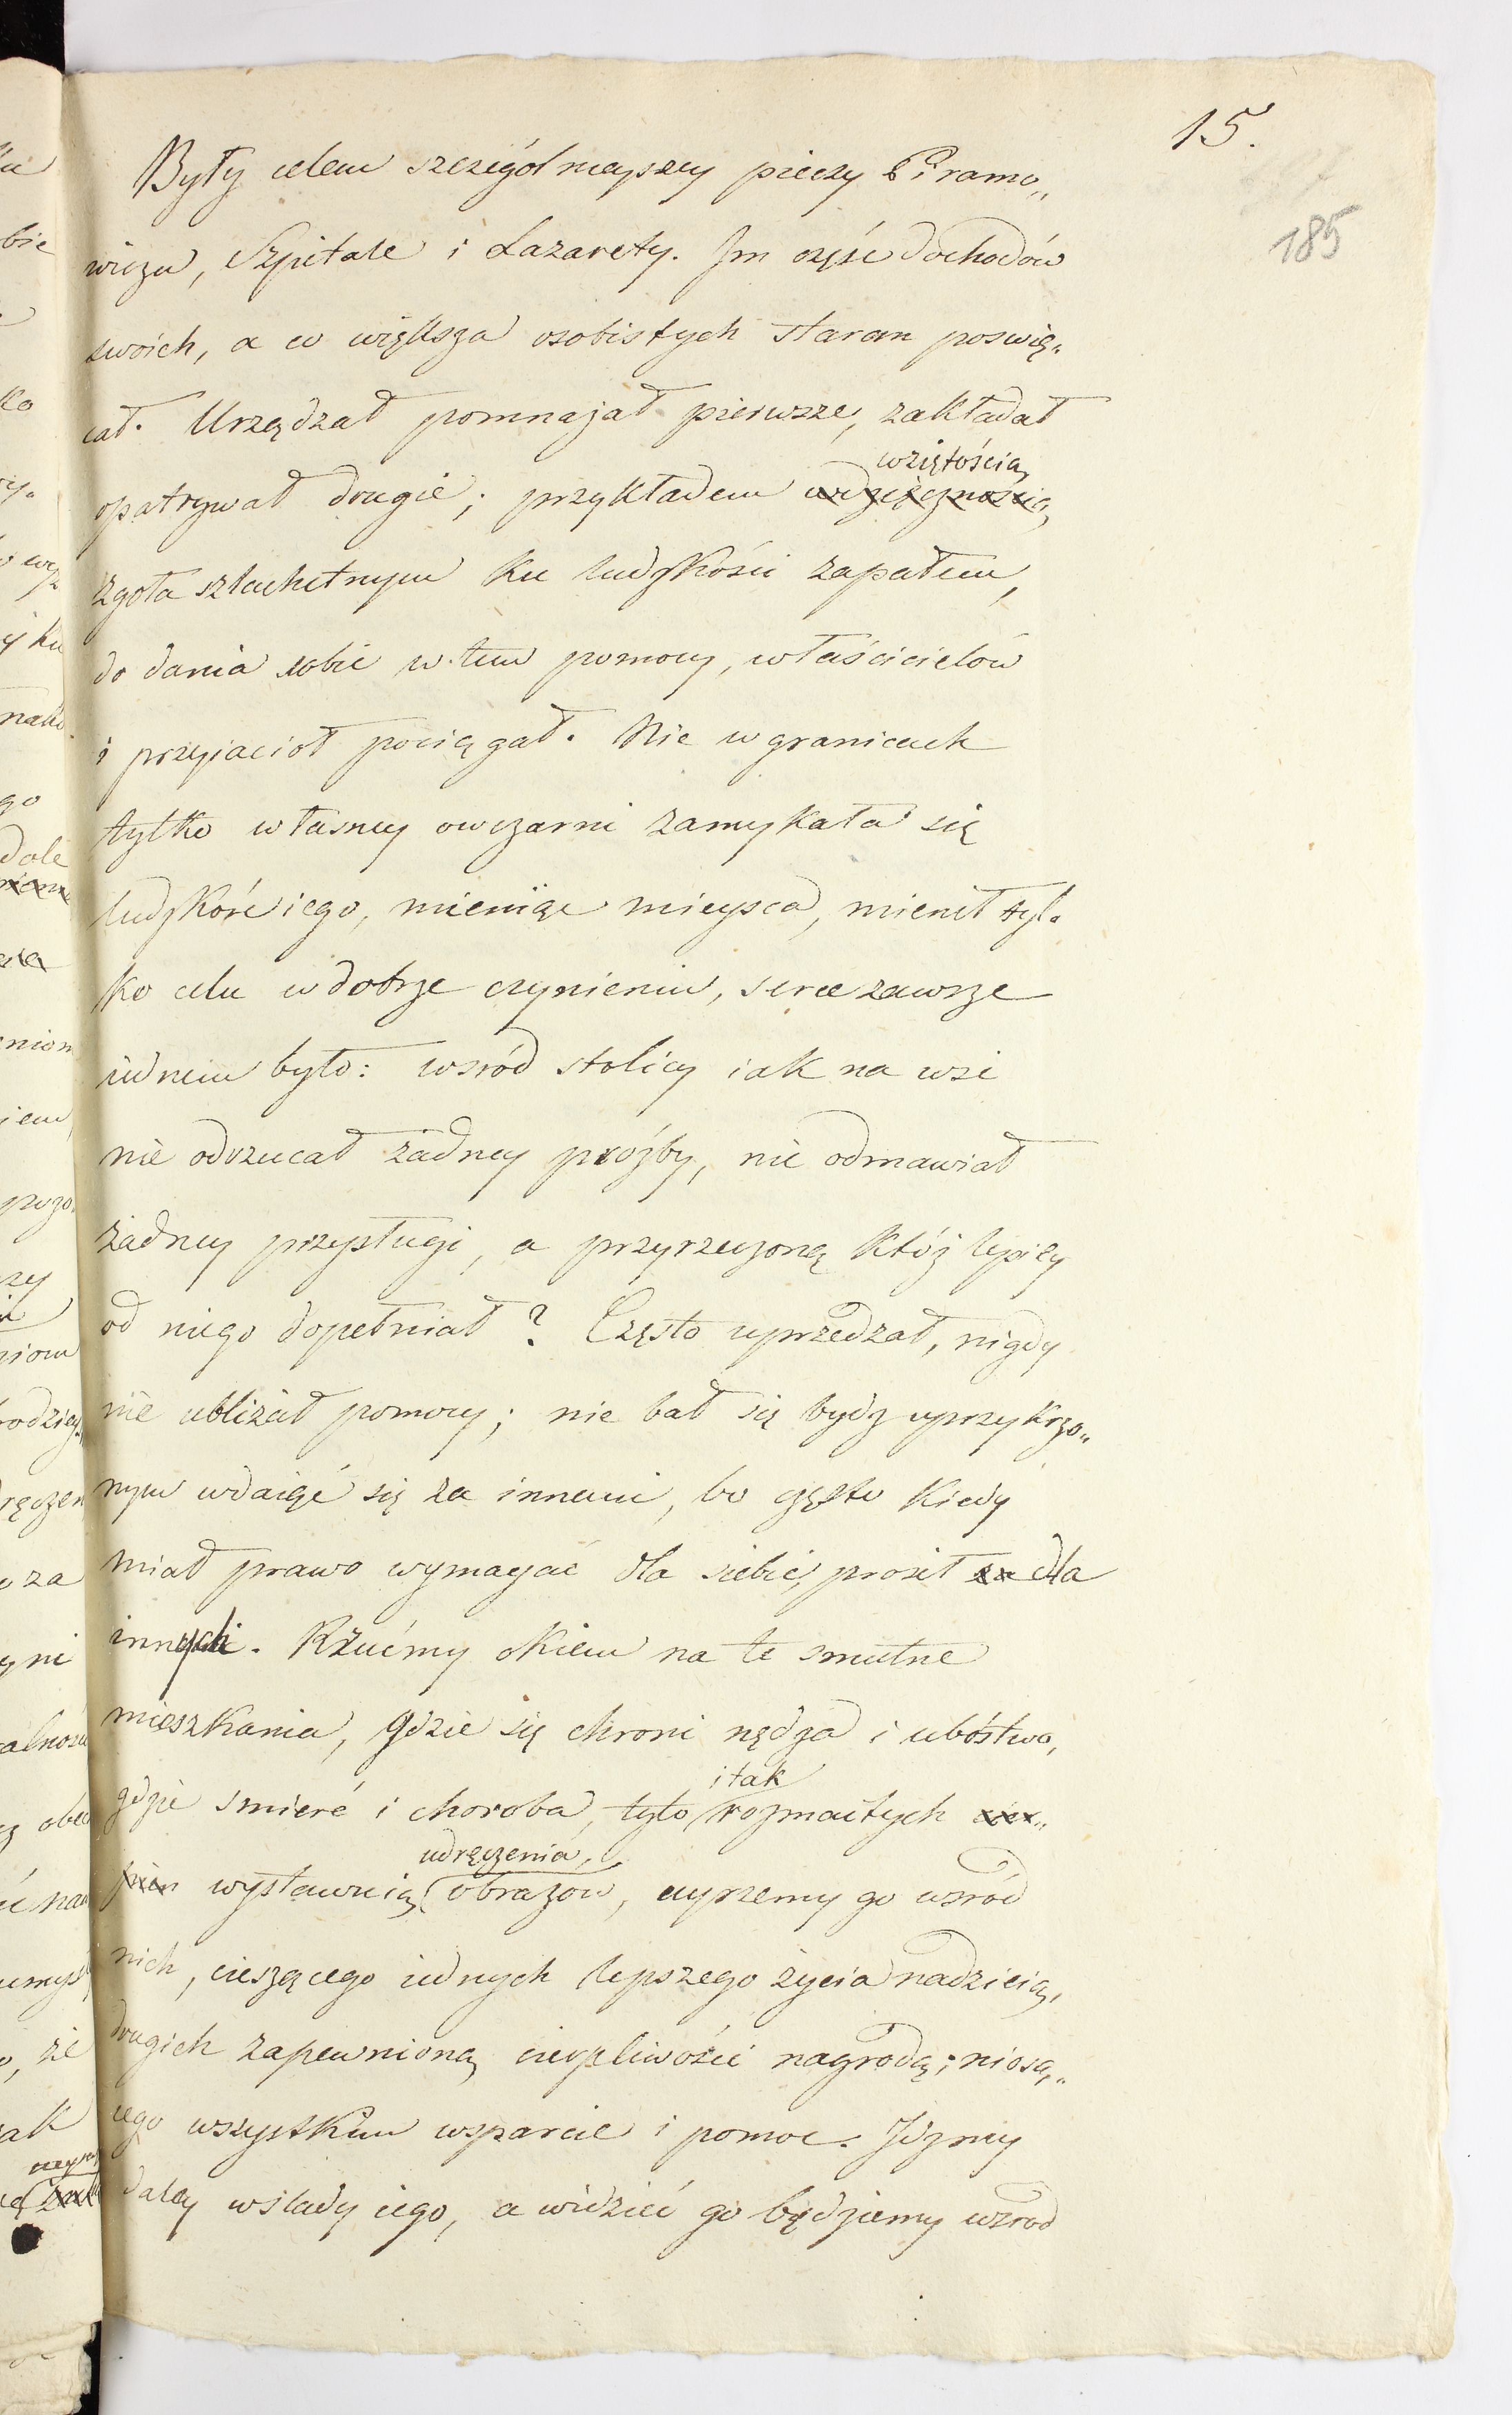 15.
185
Były celem szczególnieyszey pieczy Piramo„
wicza, Szpitale i Lazarety. Im częśc dochodów
swoich, a co większa osobistych staran poswię„
cał. Urządzał pomnażał pierwsze, zakładał
wziętością,
opatrywał drugie; przykładem wdzięcznością,
zgoła szlachetnym ku ludzkości zapałem,
do dania sobie w tem pomocy, właścicielów
i przyiacioł pociągał. Nie w granicach
tylko własney owczarni zamykała się
ludzkość iego, mieniąc mieysca, mienił tyl„
ko celu w dobrze czynieniu, serce zawsze
iednem było: wsród stolicy iak na wsi
nie odrzucał żadney prożby, nie odmawiał
żadney przysługi, a przyrzeczoną któż lepiey
od niego dopełniał? Często uprzedzał, nigdy
nie ubliżał pomocy; nie bał się bydz uprzykrzo„
nym wdaiąć się za innemi, bo często kiedy
miał prawo wymagać dla siebie, prosił za dla
innych. Rzućmy okiem na te smutne
mieszkania, gdzie się chroni nędza i ubóstwo,
i tak
gdzie smierć i choroba, tylo rozmaitych cier„
udręczenia,
pien wystawuią obrazow, uyrzemy go wsród
nich, cieszącego iednych lepszego życia nadzieią,
drugich zapewnioną cierpliwości nagrodą; niosą„
cego wszystkim wsparcie i pomoc. Idzmy
daley wslady iego, a widzieć go będziemy wsrod